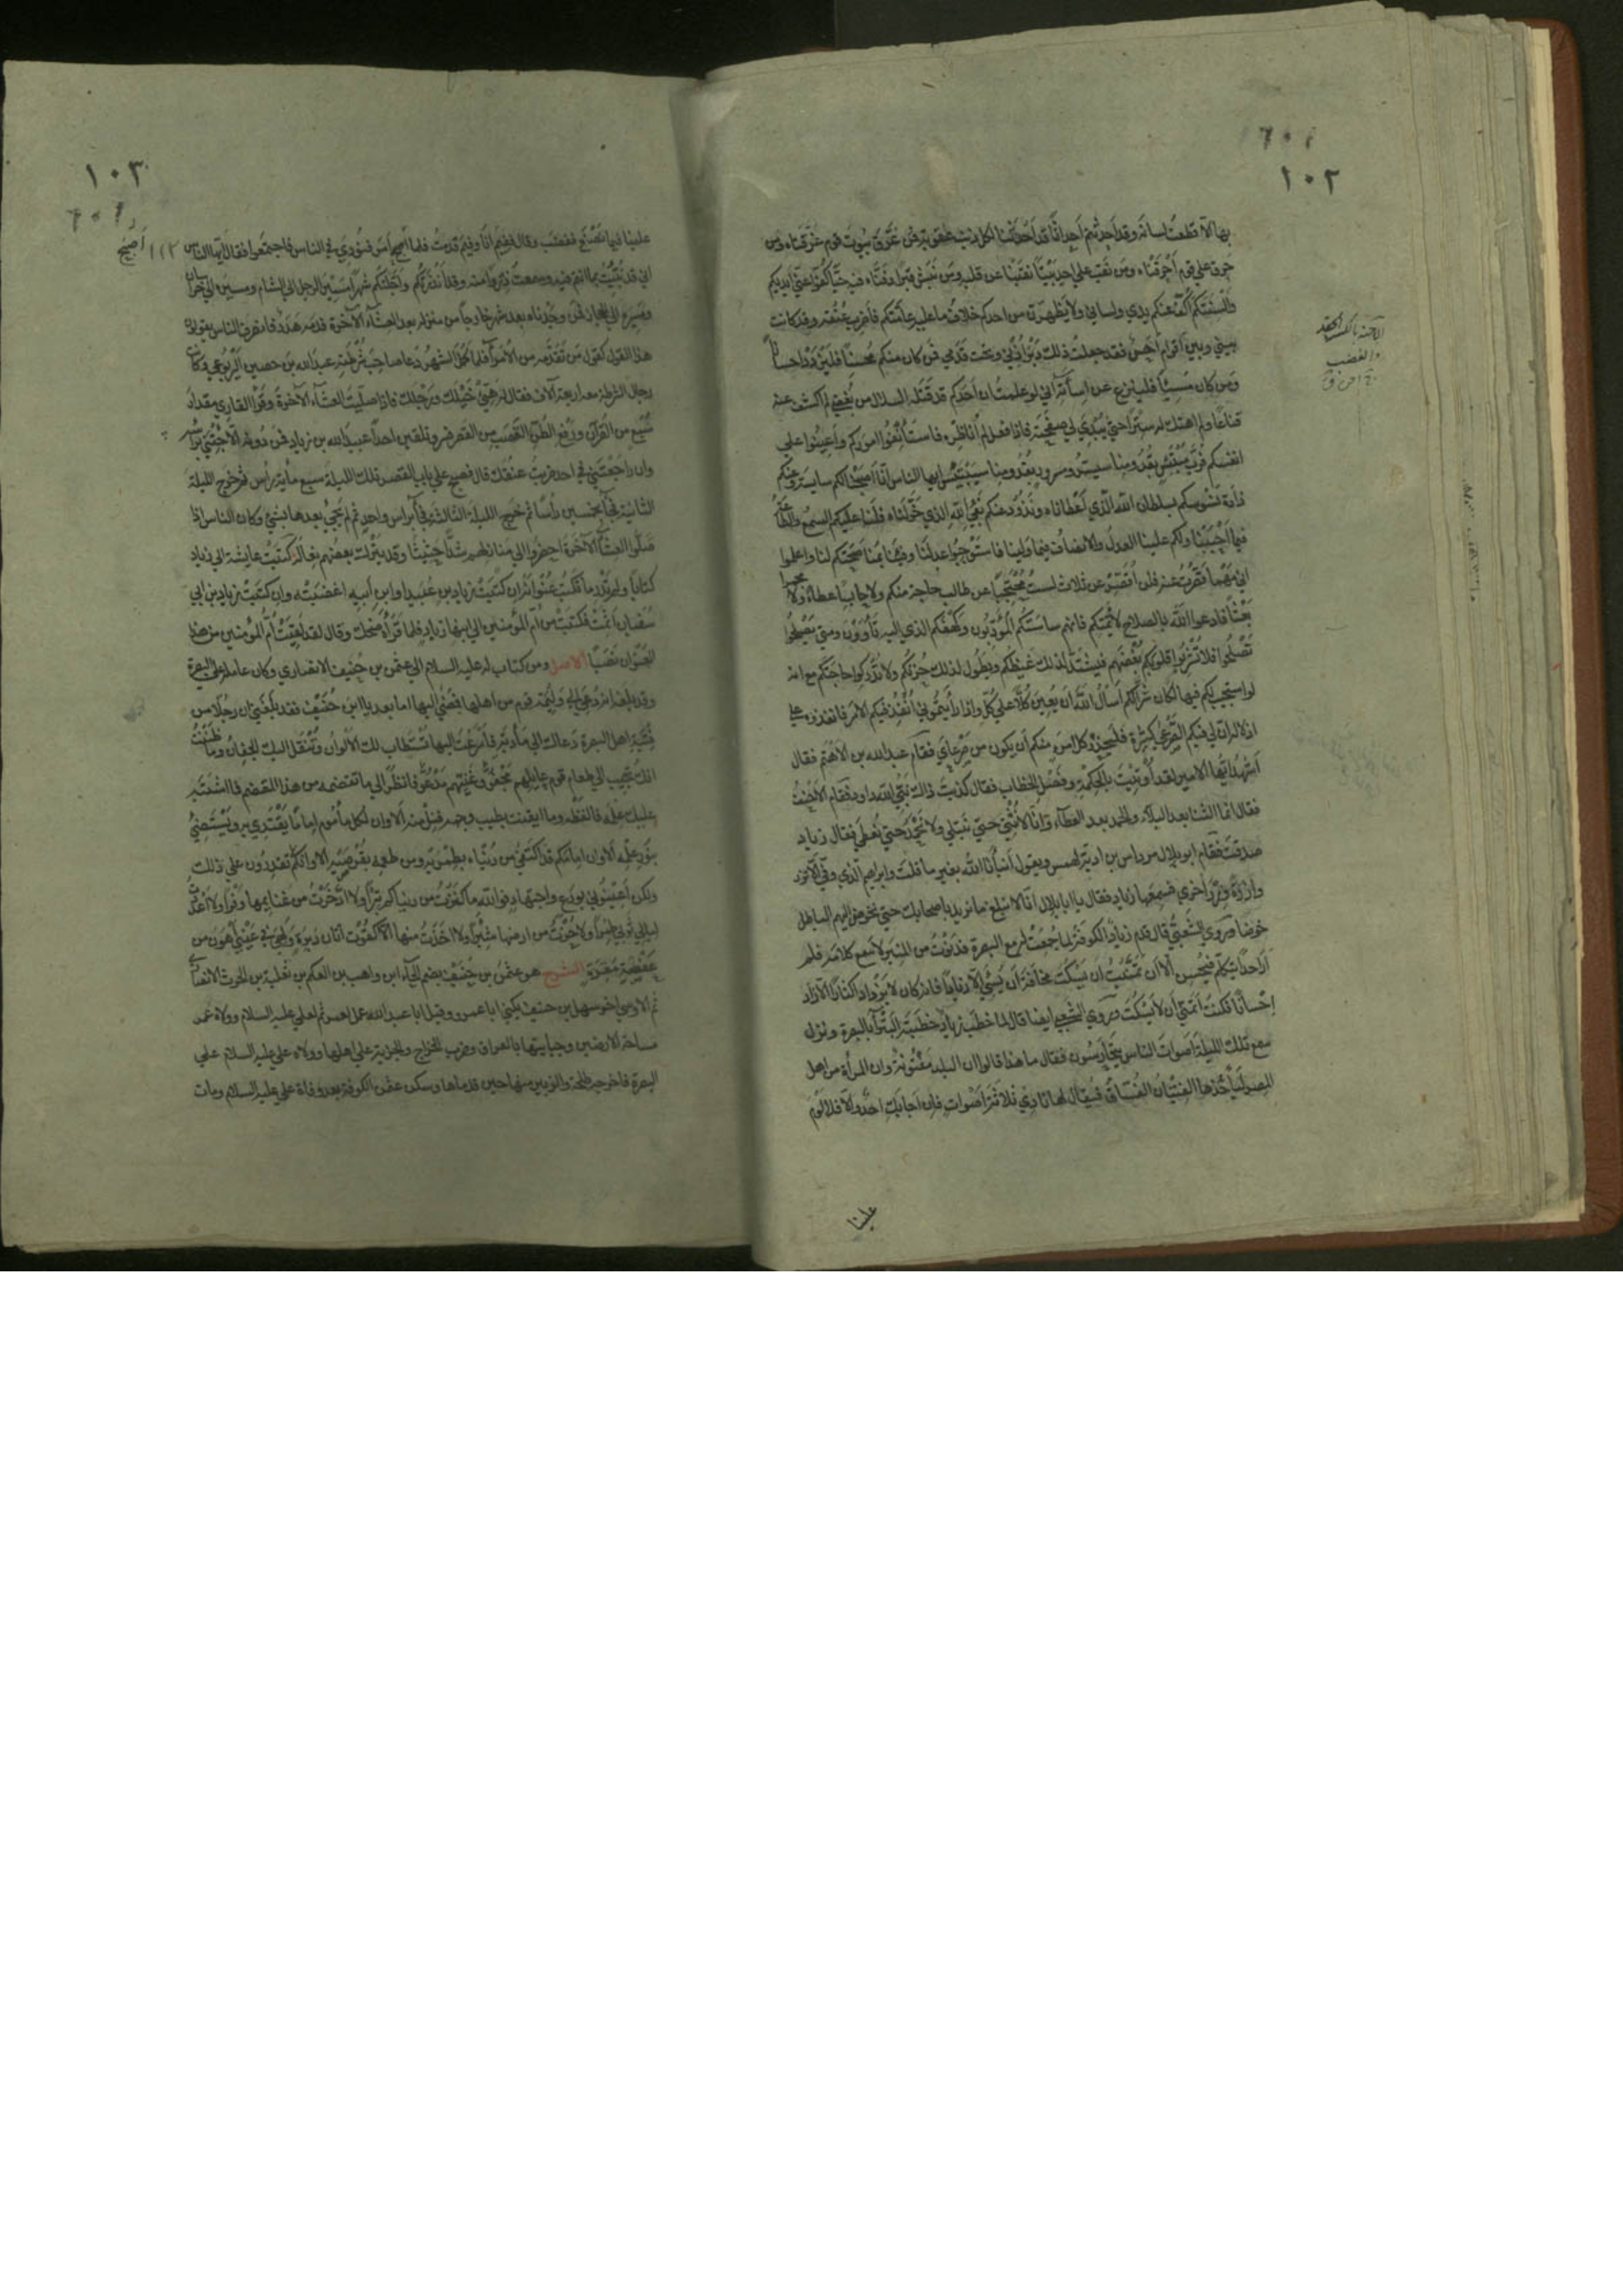 ١٠٢
بها الا قطعت لسانه وقد احدثتم احداثا وقد احدثنا لكل ذنب عقوبة فمن غرق بيوت قوم غرقناه ومن
حرق على قوم احرقناه ومن نقب على احد بيتا نقبنا عن قلبه ومن نبش قبرا دفناه فيه حيا كفوا عني ايديكم
والسنتكم اكف عنكم يدي ولساني ولا يظهرن من احدكم خلاف ما عليه عامتكم فاضرب عنقه وقد كانت
بيني وبين اقوام احن فقد جعلت ذلك دبر اذني وتحت قدمي فمن كان منكم محسنا فليزدد احسانا
ومن كان مسيئا فلينزع عن اساءته اني لو علمت ان احدكم قد قتله السلال من بغضي لم اكشف عنه
قناعا ولم اهتك له سترا حتى يبدي لي صفحته فاذا فعل لم اناظره فاستأنفوا اموركم واعينوا على
انفسكم فرب مبتئس بقدومنا سيسر ومسرور بقدومنا سيبتئس ايها الناس انا اصبحنا لكم ساسة وعنكم
ذادة نسوسكم بسلطان الله الذي اعطاناه ونذود عنكم بفيء الله الذي خولناه فلنا عليكم السمع والطاعة
فيما احببنا ولكم علينا العدل والانصاف فيما ولينا فاستوجبوا عدلنا وفيئنا بمناصحتكم لنا واعلموا
اني مهما قصرت عنه فلن اقصر عن ثلاث لست محتجبا عن طالب حاجة منكم ولا حابسا عطاء ولا مجمرا
بعثا فادعوا الله بالصلاح لائمتكم فانهم ساستكم المؤدبون وكهفكم الذي اليه تأوون ومتى يصلحوا
تصلحوا فلا تشربوا قلوبكم بغضهم فيشتد لذلك غيظكم ويطول لذلك حزنكم ولا تدركوا حاجتكم مع انه
لو استجيب لكم فيهم لكان شرا لكم اسأل الله ان يعين كلا على كل واذا رأيتموني انفذ فيكم الامر فانفذوه على
اذلاله ان لي فيكم لصرعى كثيرة فليحذر كل امرئ منكم ان يكون من صرعاي فقام عبد الله بن الاهتم فقال
اشهد ايها الامير لقد اوتيت الحكمة وفصل الخطاب فقال كذبت ذاك نبي الله داود فقام الاحنف
فقال انما الثناء بعد البلاء والحمد بعد العطاء وانا لا نثني حتى نبتلى ولا نحمد حتى نعطى فقال زياد
صدقت فقام ابو بلال مرداس بن ادية يهمس ويقول انبأنا الله بغير ما قلت وابراهيم الذي وفى الا تزر
وازرة وزر اخرى فسمعها زياد فقال يا ابا بلال انا لا نبلغ ما نريد باصحابك حتى نخوض اليهم الباطل
خوضا وروى الشعبي قال قدم زياد الكوفة لما جمعت له مع البصرة فدنوت من المنبر لاسمع كلامه فلم
ار احدا يتكلم فيحسن الا ان تمنيت ان يسكت مخافة ان يسيء الا زيادا فانه كان لا يزداد اكثارا الا ازداد
احسانا فكنت اتمنى ان لا يسكت وروى الشعبي ايضا قال لما خطب زياد خطبته البتراء بالبصرة ونزل
سمع تلك الليلة اصوات الناس يتحارسون فقال ما هذا قالوا ان البلد مفتونة وان المرأة من اهل
المصر ليأخذها الفتيان الفساق فيقال لها نادي ثلاثة اصوات فان اجابك احد والا فلا لوم
علينا
١٠٣
علينا فيما نصنع فغضب وقال ففيم انا وفيم قدمت فلما اصبح امر فنودي في الناس فاجتمعوا فقال ايها الناس
اني قد نبئت بما انتم فيه وسمعت ذروا منه وقد انذرتكم واجلتكم شهرا مسير الرجل الى الشام ومسيره الى خراسان
ومسيره الى الحجاز فمن وجدناه بعد شهر خارجا من منزله بعد العشاء الآخرة فدمه هدر فانصرف الناس يقولون
هذا القول كقول من تقدمه من الامراء فلما كمل الشهر دعا صاحب شرطته عبد الله بن حصين اليربوعي وكانت
رجال الشرطة معه اربعة آلاف فقال له هيئ خيلك ورجلك فاذا صليت العشاء الآخرة وقرأ القارئ مقدار
سبع من القرآن ورفع الطن القصب من القصر فسر ولا تلقين احدا عبيد الله بن زياد فمن دونه الا جئتني برأسه
وان راجعتني في احد ضربت عنقك قال فصبح على باب القصر تلك الليلة سبع مأية رأس ثم خرج الليلة
الثانية فجاء بخمسين رأسا ثم خرج الليلة الثالثة فجاء برأس واحد ثم لم يجئ بعدها بشيء وكان الناس اذا
صلوا العشاء الآخرة احضروا الى منازلهم شدا حثيثا وقد يترك بعضهم نعاله كتبت عايشة الى زياد
كتابا ولم تدر ما تكتب عنوانه ان كتبت زياد بن عبيد او ابن ابيه اغضبته وان كتبت زياد بن ابي
سفيان اثمت فكتبت من ام المؤمنين الى ابنها زياد فلما قرأه ضحك وقال لقد لقيت ام المؤمنين من هذا
العنوان نصبا الاصل ومن كتاب له عليه السلام الى عثمن بن حنيف الانصاري وكان عامله على البصرة
وقد بلغه انه دعي الى وليمة قوم من اهلها فمضى اليها اما بعد يا ابن حنيف فقد بلغني ان رجلا من
فتية اهل البصرة دعاك الى مأدبة فاسرعت اليها تستطاب لك الالوان وتنقل اليك الجفان وما ظننت
انك تجيب الى طعام قوم عايلهم مجفو وغنيهم مدعو فانظر الى ما تقضمه من هذا المقضم فما اشتبه
عليك علمه فالفظه وما ايقنت بطيب وجهه فنل منه الا وان لكل مأموم اماما يقتدي به ويستضيء
بنور علمه الا وان امامكم قد اكتفى من دنياه بطمريه ومن طعمه بقرصيه الا وانكم لا تقدرون على ذلك
ولكن اعينوني بورع واجتهاد فوالله ما كنزت من دنياكم تبرا ولا ادخرت من غنايمها وفرا ولا اعددت
لبالي ثوبي طمرا ولا حزت من ارضها شبرا ولا اخذت منها الا كقوت اتان دبرة ولهي في عيني اهون من
عفصة مقرة الشرح هو عثمن بن حنيف بضم الحاء ابن واهب بن العكم بن ثعلبة بن الحرث الانصاري
ثم الاوسي اخو سهل بن حنيف يكنى ابا عمرو وقيل ابا عبد الله عمل لعمر ثم لعلي عليه السلام وولاه عمر
مساحة الارضين وجبايتها بالعراق وضرب الخراج والجزية على اهلها وولاه علي عليه السلام على
البصرة فاخرجه طلحة والزبير منها حين قدماها وسكن عثمن الكوفة بعد وفاة علي عليه السلام ومات